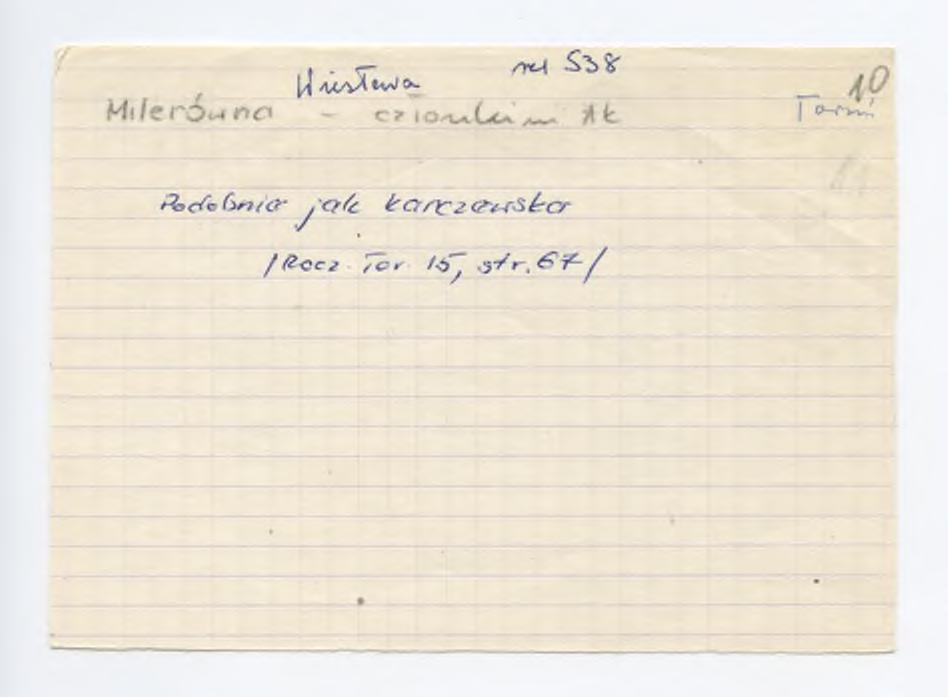 Wiesława rel 538
Milerówna - członkini AK Toruń 10
Podobnie jak Karczewska
/Rocz. Tor. 15, str. 67/